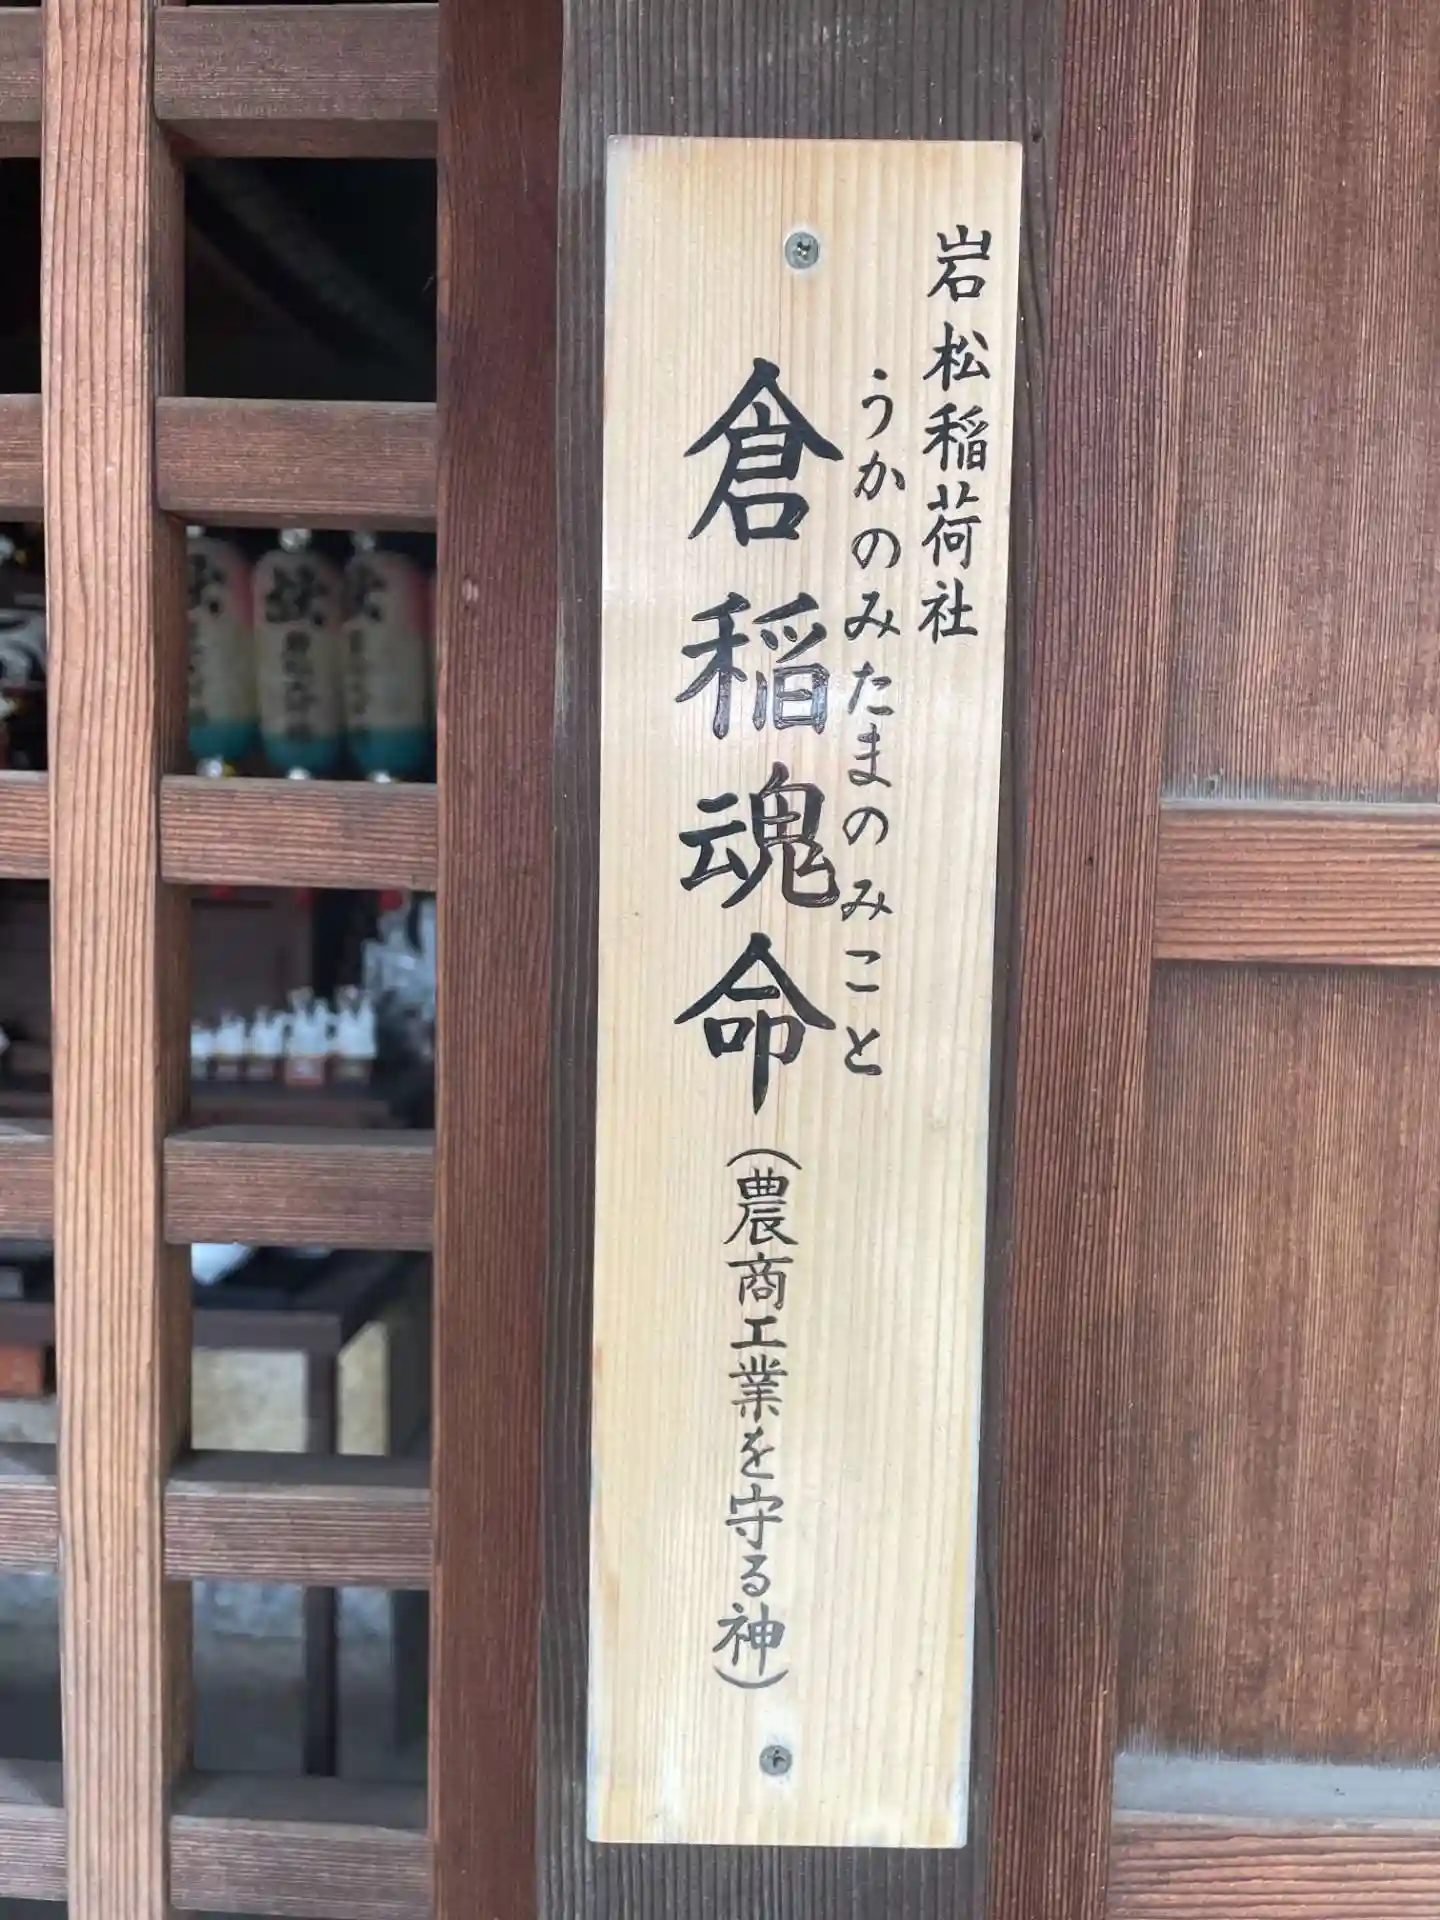 岩松稲荷社
うかのみたまのみこと
倉稲魂命(農商工業を守る神)